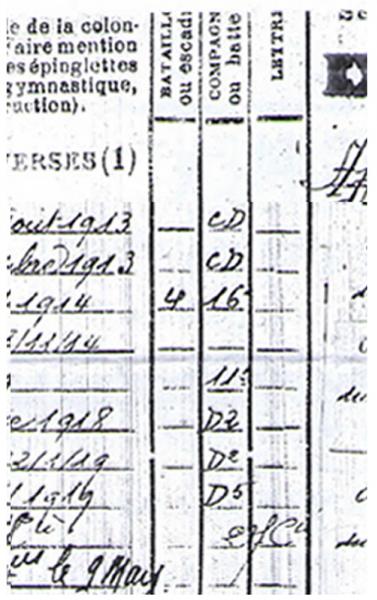 e de la colon-
faire mention
es épinglettes
gymnastique,
ruction).
BATAILL
ou escadr
COMPAGN
ou batte
LETTRE
ERSES (1)
out 1913 — CD —
bre) 1913 — CD —
1914 4 16e —
/11/14 — —
— 11e —
e 1918 — D2 —
2/1/19 — De —
/1919 — D5 —
le 9 Mars